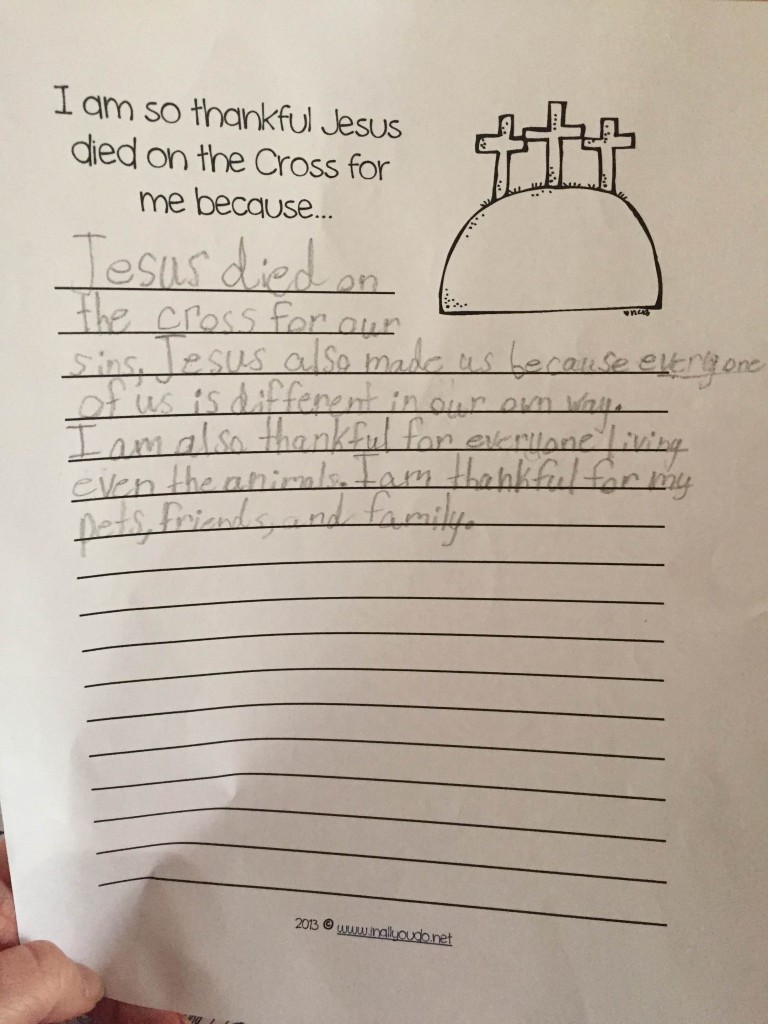 I am so thankful Jesus
died on the Cross for
me because...
Jesus died on
the cross for our
sins. Jesus also made us because everyone
of us is different in our own way.
I am also thankful for everyone living
even the animals. I am thankful for my
pets, friends, and family.
2013 © www.inallyoudo.net